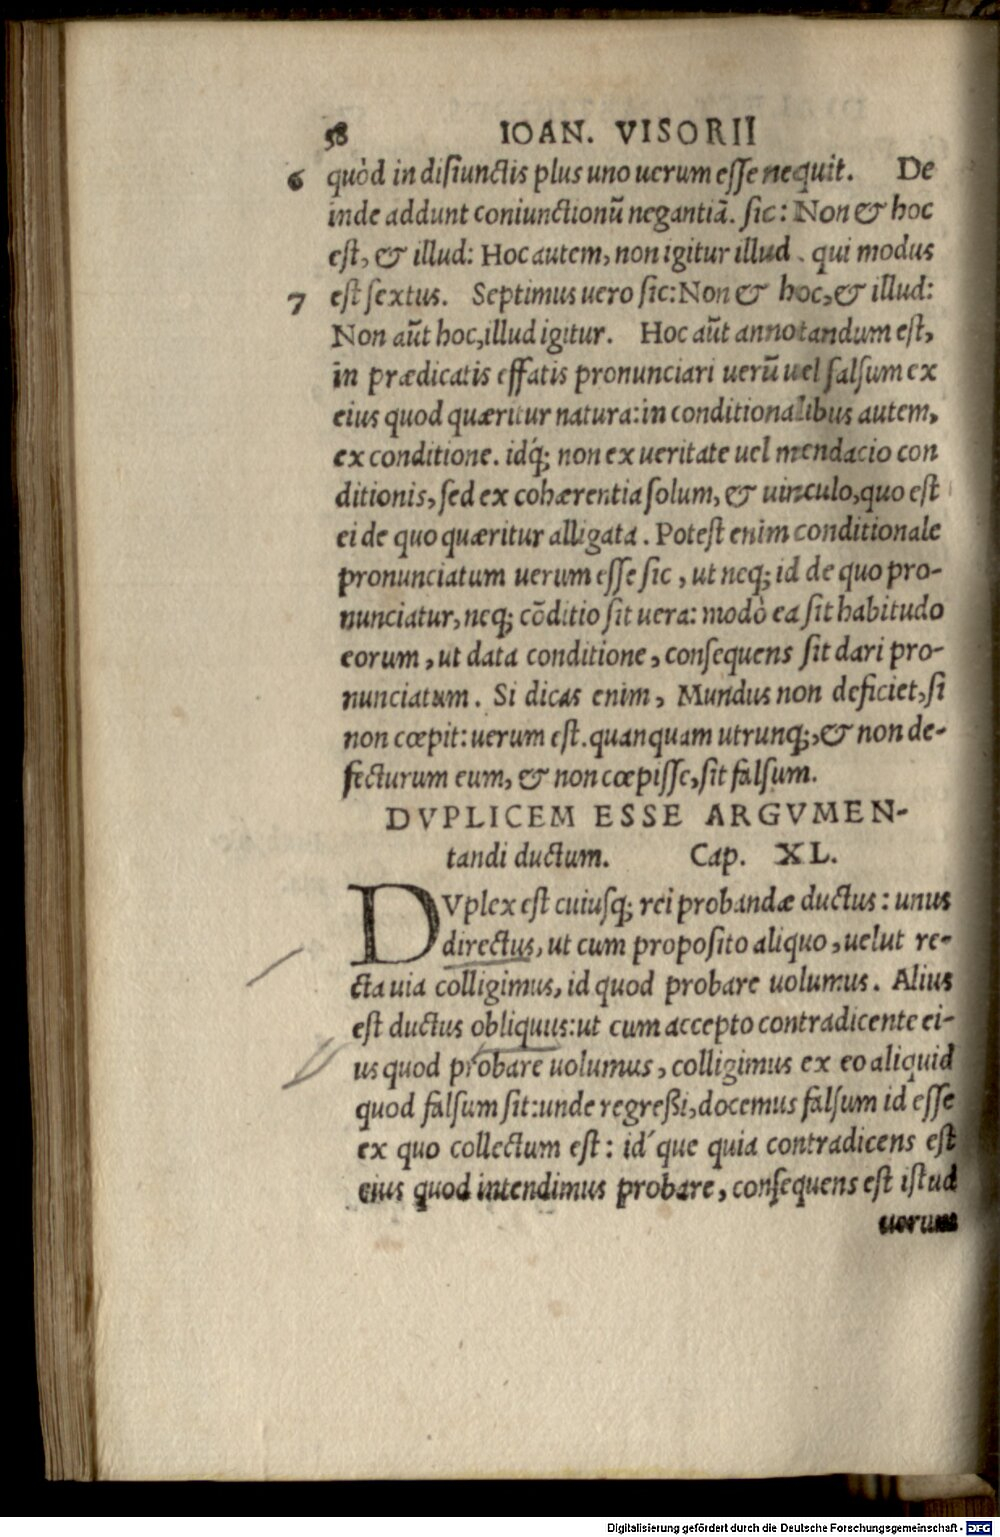 58 IOAN. VISORII
6 quòd in disiunctis plus uno uerum esse nequit. De
inde addunt coniunctionũ negantiã. sic: Non & hoc
est, & illud: Hoc autem, non igitur illud. qui modus
7 est sextus. Septimus uero sic: Non & hoc, & illud:
Non aũt hoc, illud igitur. Hoc aũt annotandum est,
in prædicatis effatis pronunciari uerũ uel falsum ex
eius quod quæritur natura: in conditionalibus autem,
ex conditione. idq́; non ex ueritate uel mendacio con
ditionis, sed ex cohærentia solum, & uinculo, quo est
ei de quo quæritur alligata. Potest enim conditionale
pronunciatum uerum esse sic, ut neq; id de quo pro-
nunciatur, neq; cõditio sit uera: modò ea sit habitudo
eorum, ut data conditione, consequens sit dari pro-
nunciatum. Si dicas enim, Mundus non deficiet, si
non cœpit: uerum est. quanquam utrunq;, & non de-
fecturum eum, & non cœpisse, sit falsum.
DVPLICEM ESSE ARGVMEN-
tandi ductum. Cap. XL.
DVplex est cuiusq; rei probandæ ductus: unus
directus, ut cum proposito aliquo, uelut re-
cta uia colligimus, id quod probare uolumus. Alius
est ductus obliquus: ut cum accepto contradicente ei-
us quod probare uolumus, colligimus ex eo aliquid
quod falsum sit: unde regreßi, docemus falsum id esse
ex quo collectum est: id´que quia contradicens est
eius quod intendimus probare, consequens est istud
uerum
Digitalisierung gefördert durch die Deutsche Forschungsgemeinschaft - DFG